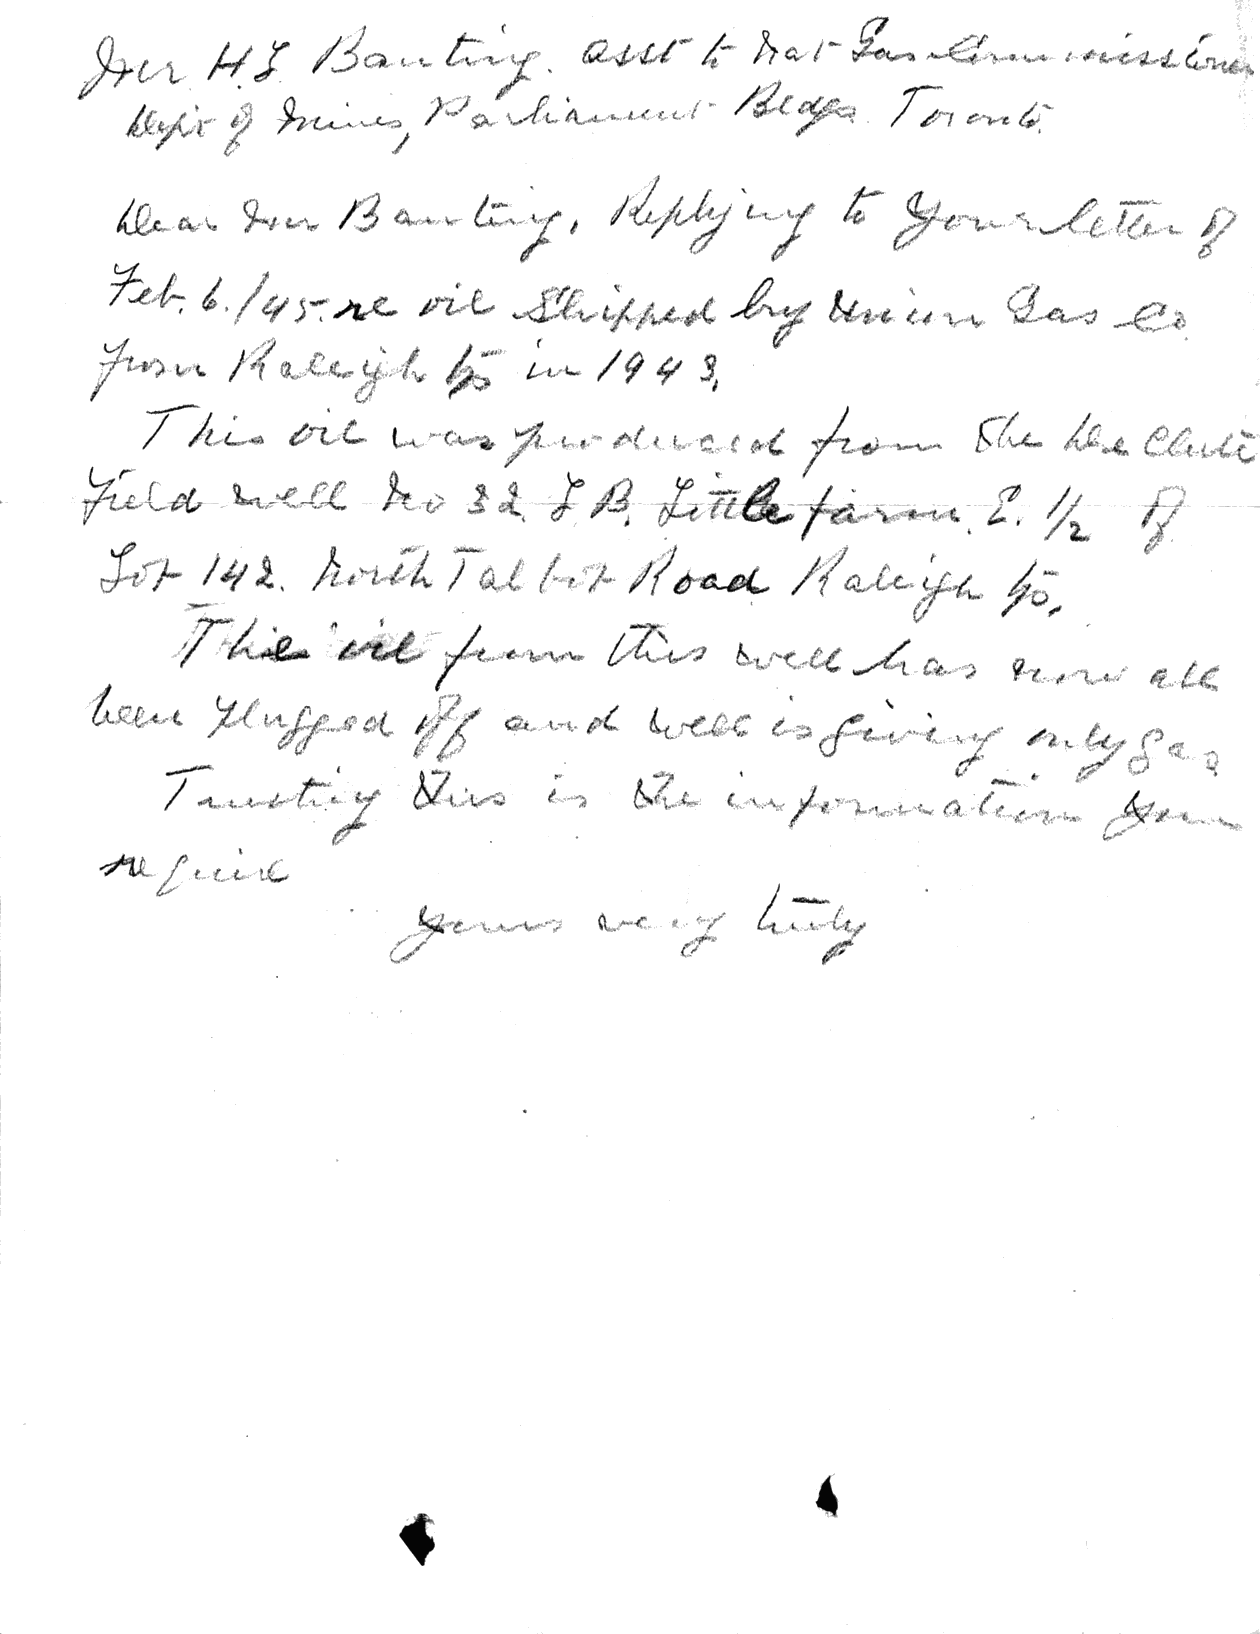 Mr H.L. Banting. asst to Nat Gas Commissioner
Dept of Mines, Parliament Bldgs. Toronto.
Dear Mr Banting, Replying to Your letter of
Feb. 6./45. re oil Shipped by Union Gas Co
from Raleigh tp in 1943.
This oil was produced from the De Clute
Field well No 32. L B. Little farm. E. 1/2 of
Lot 142. North Talbot Road Raleigh tp.
The oil from this well has now all
been plugged off and well is giving only gas
Trusting this is the information you
require
Yours very truly